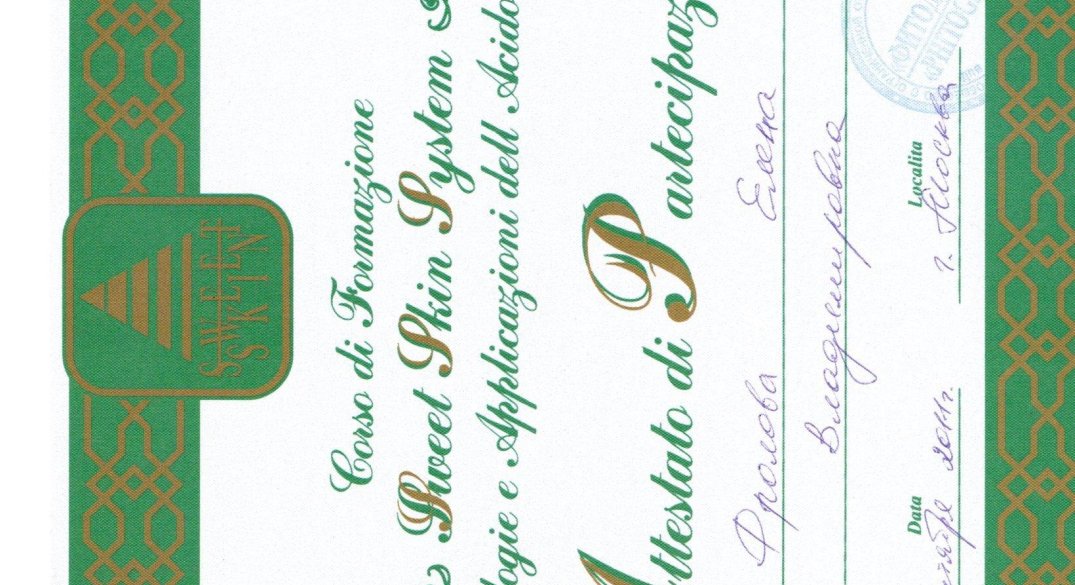 SWEET
SKIN
Corso di Formazione
Sweet Skin System
logie e Applicazioni dell Acido
Attestato di Partecipaz
Фролова Елена
Владимировна
Data
2011г.
Localita
г. Москва